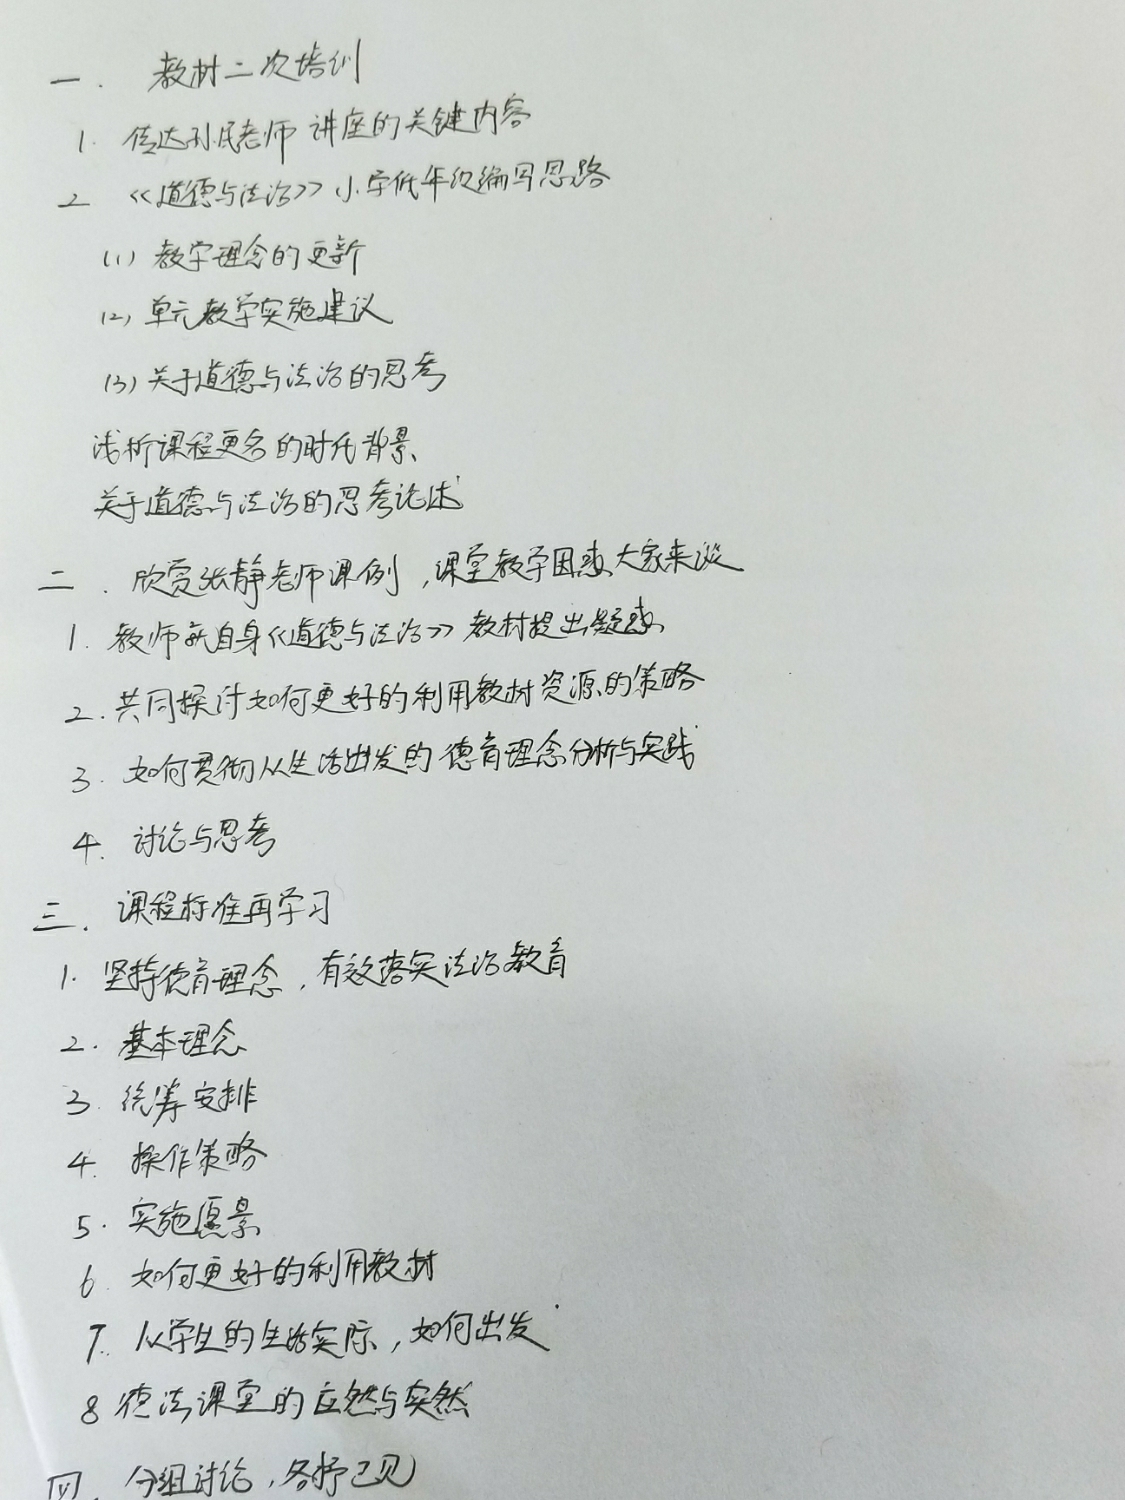 一. 教材二次培训
1. 传达孙民老师讲座的关键内容
2 《道德与法治》小学低年段编写思路
(1) 教学理念的更新
(2) 单元教学实施建议
(3) 关于道德与法治的思考
浅析课程更名的时代背景
关于道德与法治的思考论述
二. 欣赏张静老师课例,课堂教学困惑大家来谈
1. 教师就自身《道德与法治》教材提出疑惑
2. 共同探讨如何更好的利用教材资源的策略
3. 如何贯彻从生活出发的德育理念分析与实践
4. 讨论与思考
三. 课程标准再学习
1. 坚持德育理念,有效落实法治教育
2. 基本理念
3. 统筹安排
4. 操作策略
5. 实施愿景
6. 如何更好的利用教材
7. 从学生的生活实际,如何出发
8 德法课堂的应然与实然
四. 分组讨论,各抒己见